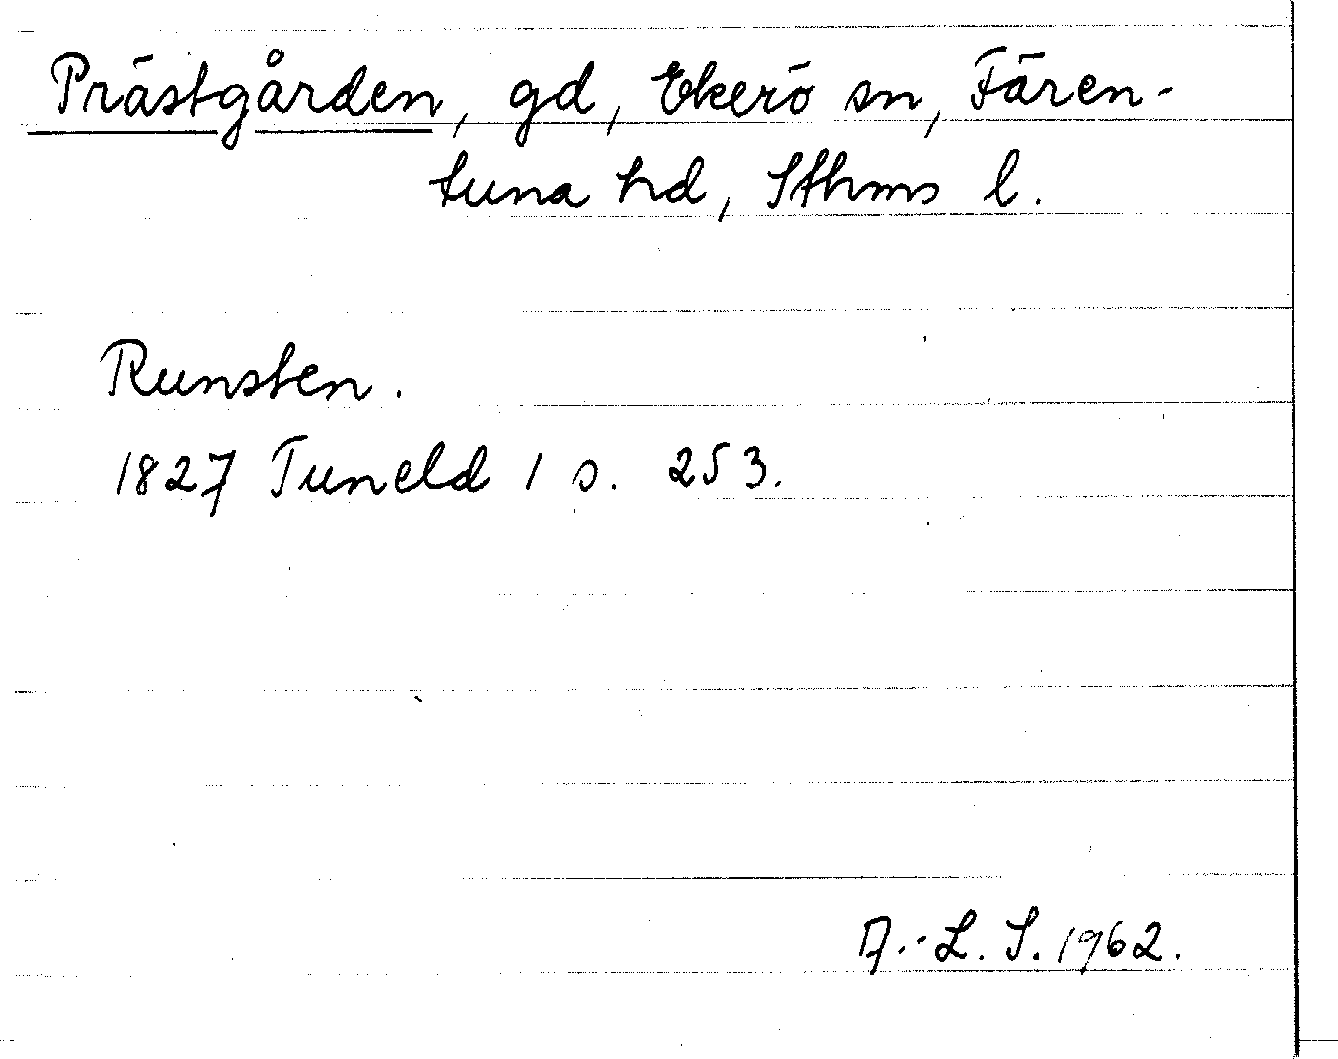 Prästgården, gd, Ekerö sn, Fären-
tuna hd, Sthms l.
Runsten.
1827 Tuneld 1 s. 253.
A.-L. S. 1962.